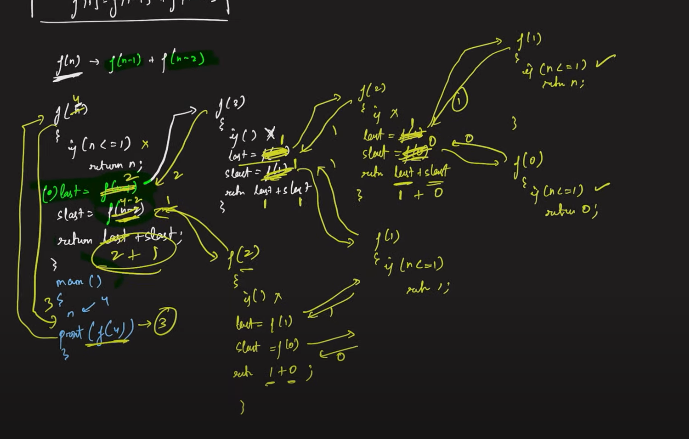 f(n) → f(n-1) + f(n-2)
f(4)
{
if (n<=1) x
return n;
last = f(n-1) 2
slast = f(n-2) 1
return last + slast;
2 + 1
}
main()
{
n ← 4
print (f(4)) → 3
}
3
f(2)
{
if() x
last = f(1) 1
slast = f(1) 1
retn last+slast
1 1
}
2
2
f(2)
{
if x
last = f(1) 1
slast = f(0) 0
retn last + slast
1 + 0
}
1
1
f(1)
{
if (n<=1) ✓
retn n;
}
1
f(0)
{
if (n<=1) ✓
return 0;
0
f(1)
{
if (n<=1)
retn 1;
1
f(2)
{
if() x
last = f(1)
1
slast = f(0)
0
retn 1+0;
}
1